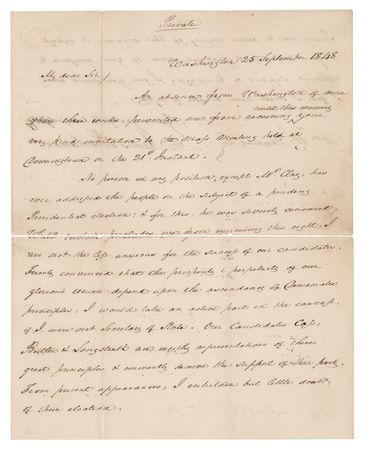 Private
Washington 25 September 1848.
My dear Sir,
An absence from Washington of more
until this morning
than three weeks prevented me from receiving your
very kind invitation to the Mass Meeting held at
Downingtown on the 21st Instant.
No person in my position, except Mr. Clay, has
ever addressed the people on the subject of a pending
Presidential election: & for this, he was severely censured.
Whilst custom precludes me from exercising this right, I
am not the less anxious for the success of our candidates.
Firmly convinced that the prosperity & perpetuity of our
glorious Union depend upon the ascendancy of Democratic
principles, I would take an active part in the canvass,
if I were not Secretary of State. Our Candidates Cass,
Butler & Longstreth are worthy representatives of these
great principles & eminently deserve the support of their party.
From present appearances, I entertain but little doubt
of their election.